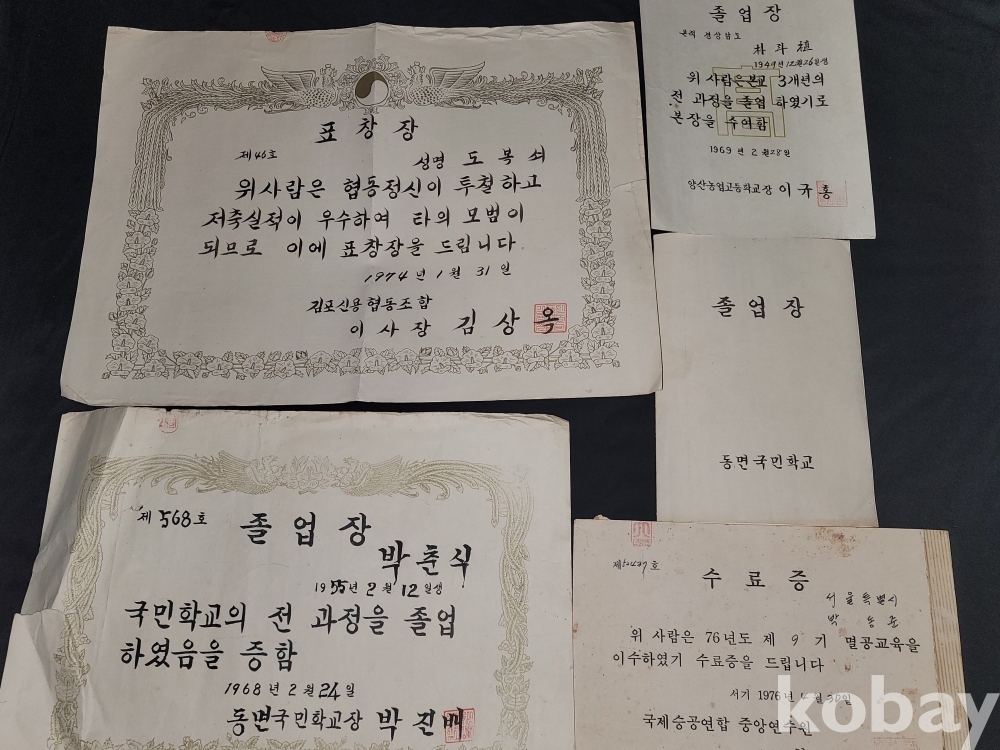 표창장
제46호
성명 도복쇠
위사람은 협동정신이 투철하고
저축실적이 우수하여 타의 모범이
되므로 이에 표창장을 드립니다.
1974년 1월 31일
김포신용협동조합
이사장 김상옥
졸업장
본적 경상남도
朴斗植
1949년 12월 26일생
위 사람은 본교 3개년의
전 과정을 졸업 하였기로
본장을 수여함
1969년 2월 28일
양산농업고등학교장 이규홍
졸업장
동면국민학교
제568호
졸업장
박춘식
1955년 2월 12일생
국민학교의 전 과정을 졸업
하였음을 증함
1968년 2월 24일
동면국민학교장 박진
제 호
수료증
서울특별시
박동준
위 사람은 76년도 제 9 기 멸공교육을
이수하였기 수료증을 드립니다
서기 1976년 월 30일
국제승공연합 중앙연수원
kobay